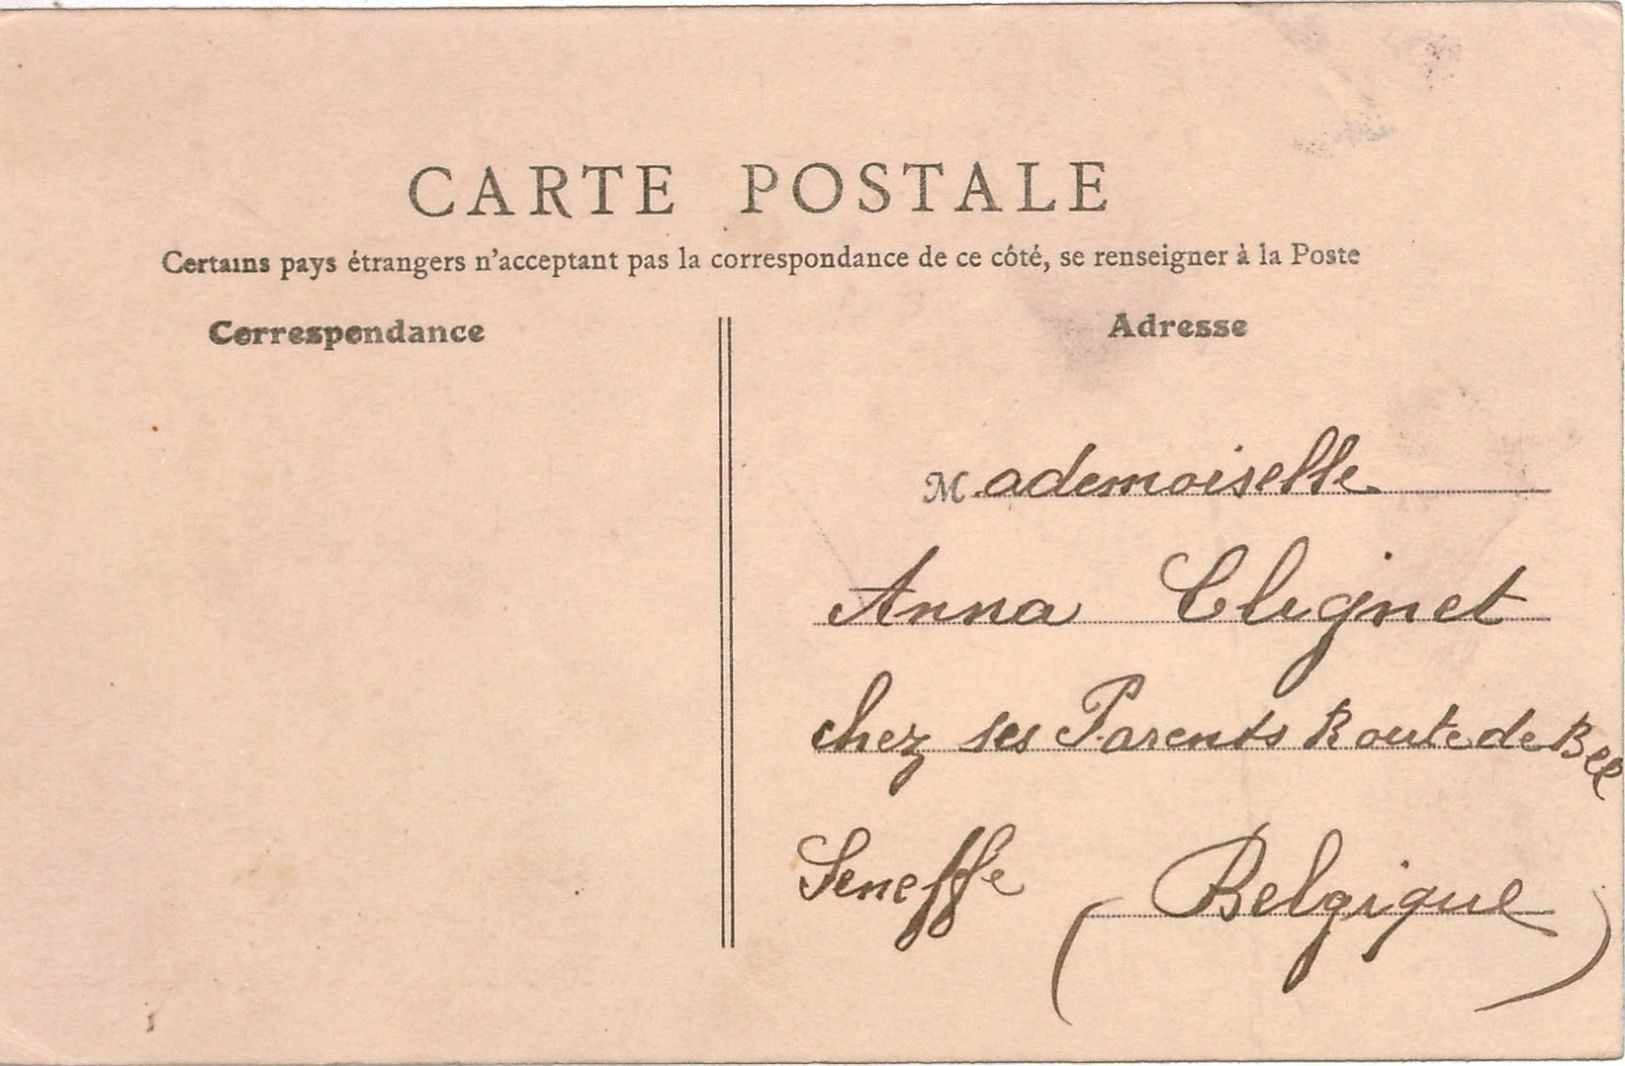 CARTE POSTALE
Certains pays étrangers n'acceptant pas la correspondance de ce côté, se renseigner à la Poste
Correspondance
Adresse
Mademoiselle
Anna Clignet
chez ses Parents Route de Bel
Seneffe (Belgique)